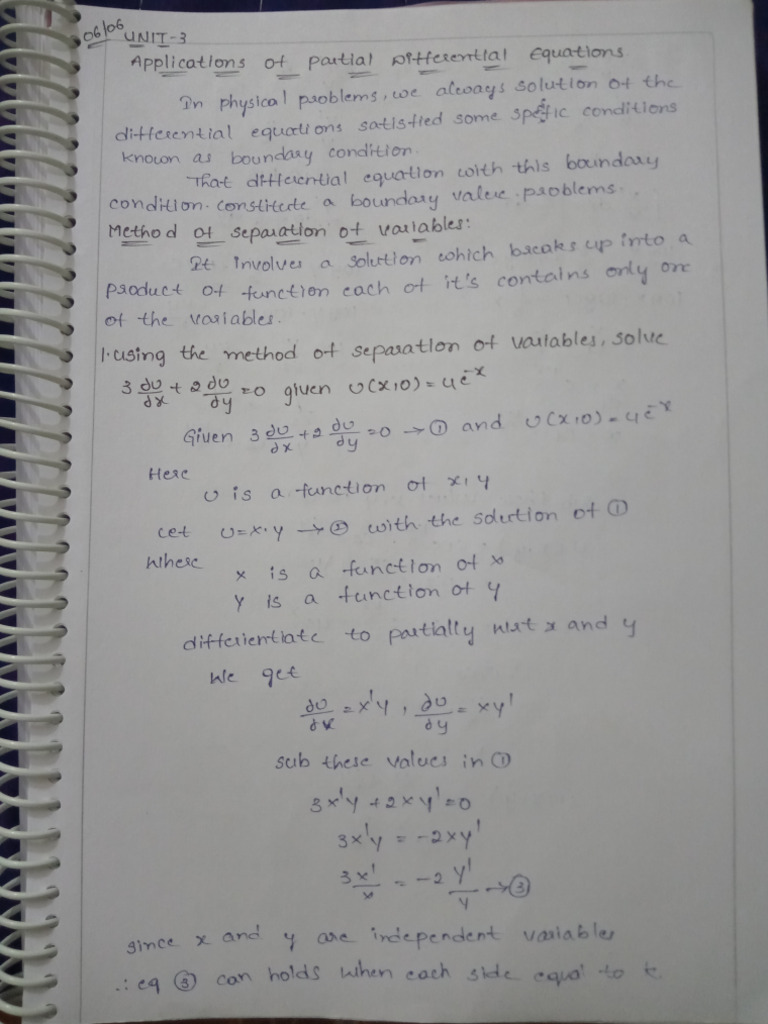 06/06 UNIT-3
Applications of partial Differential Equations
In physical problems, we always solution of the
differential equations satisfied some spefic conditions
known as boundary condition.
That differential equation with this boundary
condition. constitute a boundary value problems.
Method of separation of variables:
It involves a solution which breaks up into a
product of function each of it's contains only one
of the variables.
1. using the method of separation of variables, solve
3 ∂u/∂x + 2 ∂u/∂y = 0 given u(x,0) = 4e^-x
Given 3 ∂u/∂x + 2 ∂u/∂y = 0 → ① and u(x,0) = 4e^-x
Here
u is a function of x,y
Let u = x·y → ② with the solution of ①
Where x is a function of x
Y is a function of y
differientiate to partially w.r.t x and y
We get
∂u/∂x = x'y, ∂u/∂y = xy'
sub these values in ①
3x'y + 2xy' = 0
3x'y = -2xy'
3 x'/x = -2 y'/y → ③
since x and y are independent variables
∴ eq ③ can holds when each side equal to k